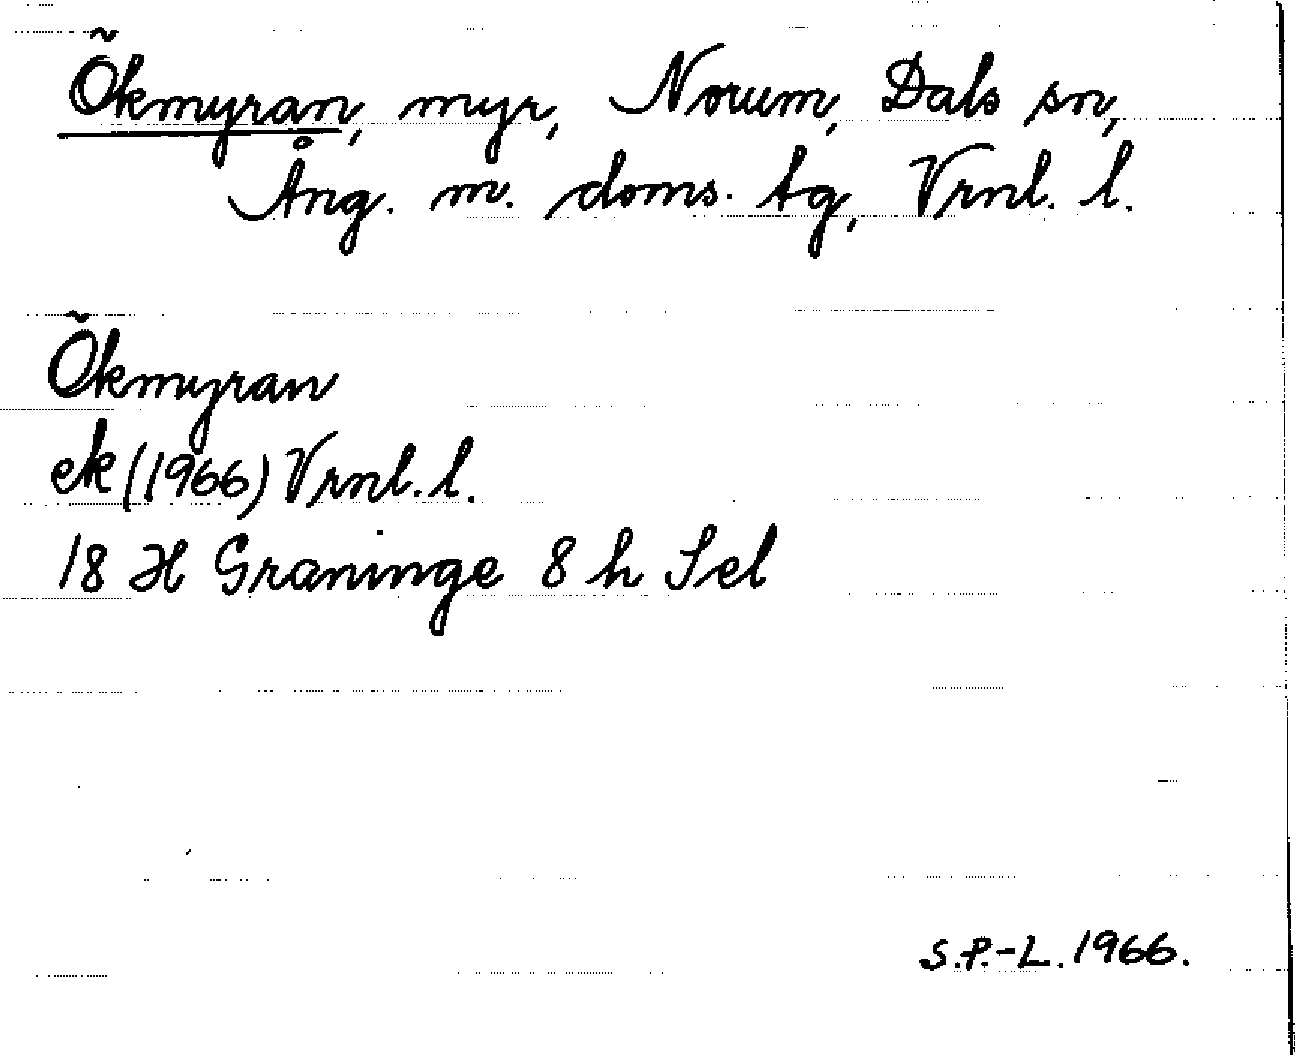 Ökmyran, myr, Norum, Dals sn,
Ång. m. doms. tg, Vrnl. l.
Ökmyran
ek (1966) Vrnl. l.
18 H Graninge 8 h Sel
S.P.-L. 1966.